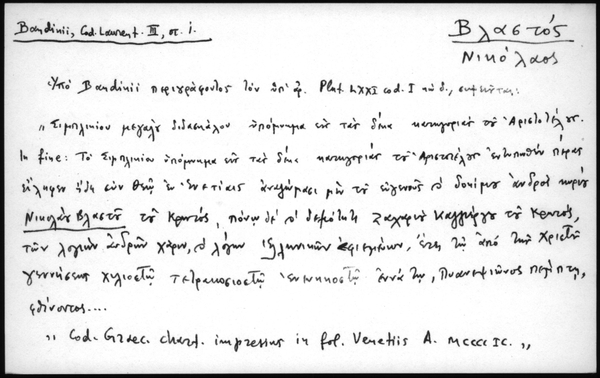 Bandinii, Cod. Laurent. III, στ. i.
Βλαστός
Νικόλαος
Ὑπὸ Bandinii περιγράφοντος τὸν ὑπ' ἀρ. Plut. LXXI cod. I
„ Σιμπλικίου μεγάλου διδασκάλου ὑπόμνημα εἰς τὰς δέκα κατηγορίας τοῦ Ἀριστοτέλους.
In fine: Τὸ Σιμπλικίου ὑπόμνημα εἰς τὰς δέκα κατηγορίας τοῦ Ἀριστοτέλους ἐντυπωθὲν πέρας
εἴληφεν ἤδη σὺν θεῷ ἐν Ἐνετίαις ἀναλώμασι μὲν τοῦ εὐγενοῦς καὶ δοκίμου ἀνδρὸς κυρίου
Νικολάου Βλαστοῦ τοῦ Κρητός, πόνῳ δὲ καὶ δεξιότητι Ζαχαρίου Καλλιέργου τοῦ Κρητός,
τῶν λογίων ἀνδρῶν χάριν, καὶ λόγων Ἑλληνικῶν ἐφιεμένων, ἔτει τῷ ἀπὸ τῆς Χριστοῦ
γεννήσεως χιλιοστῷ τετρακοσιοστῷ ἐνενηκοστῷ ἐννάτῳ, Πυανεψιῶνος πέμπτῃ,
φθίνοντος....
„ Cod. Graec. chart. impressus in fol. Venetiis A. MCCCCIC. „